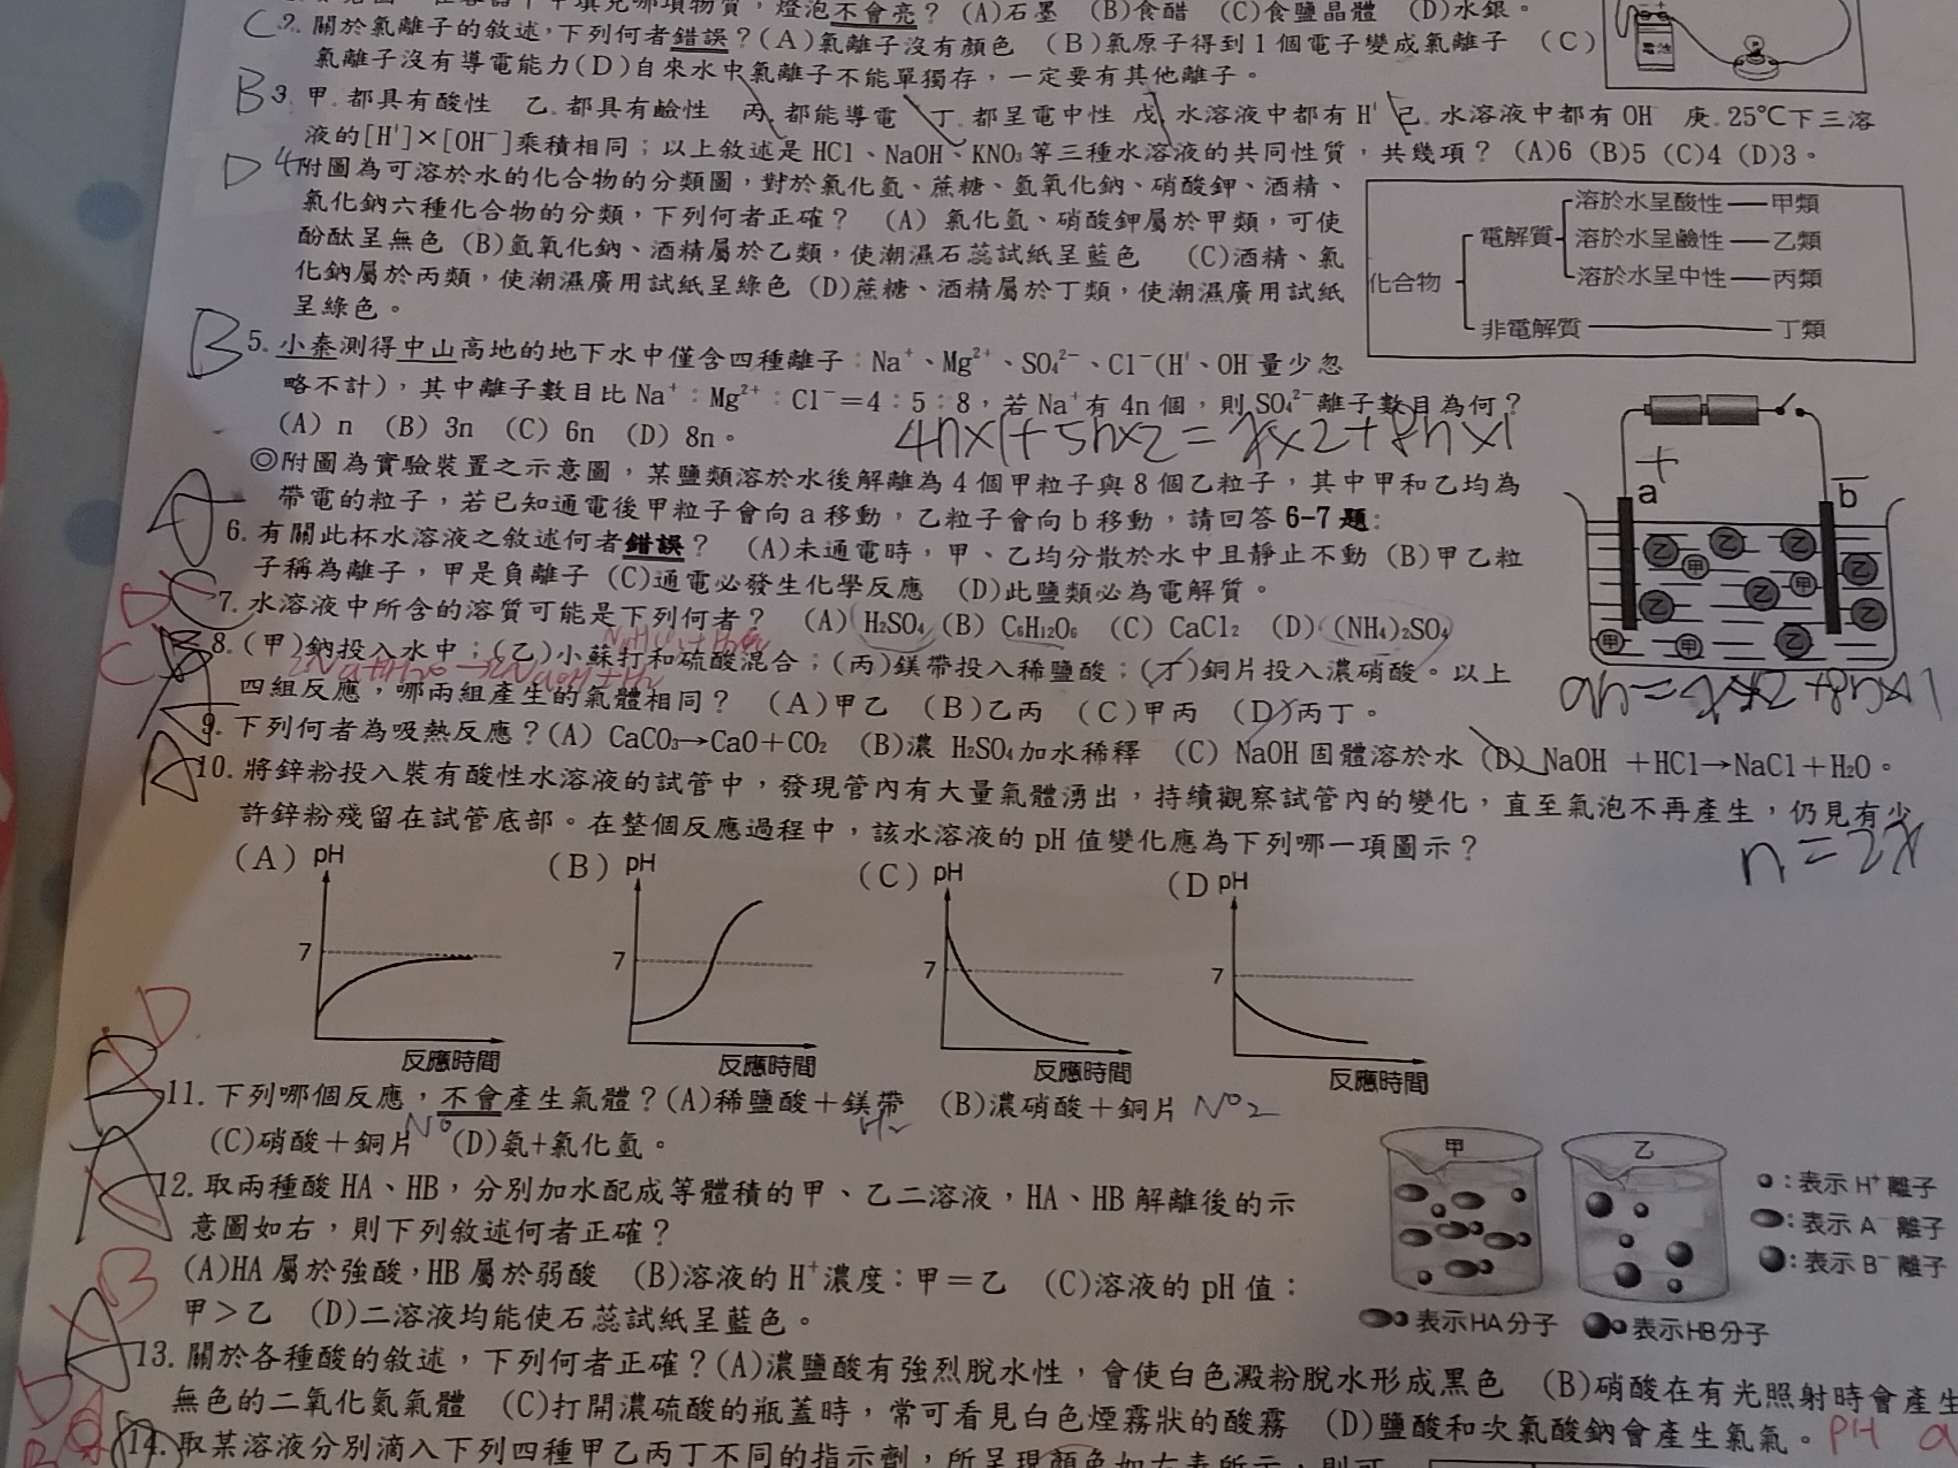 填充哪項物質，燈泡不會亮？(A)石墨 (B)食醋 (C)食鹽晶體 (D)水銀。
C 2. 關於氯離子的敘述，下列何者錯誤？(A)氯離子沒有顏色 (B)氯原子得到1個電子變成氯離子 (C)
氯離子沒有導電能力(D)自來水中氯離子不能單獨存，一定要有其他離子。
電池
B 3. 甲.都具有酸性 乙.都具有鹼性 丙.都能導電 丁.都呈電中性 戊.水溶液中都有H⁺ 己.水溶液中都有OH⁻ 庚.25℃下三溶
液的[H⁺]×[OH⁻]乘積相同；以上敘述是HCl、NaOH、KNO₃等三種水溶液的共同性質，共幾項？(A)6 (B)5 (C)4 (D)3。
D 4附圖為可溶於水的化合物的分類圖，對於氯化氫、蔗糖、氫氧化鈉、硝酸鉀、酒精、
氯化鈉六種化合物的分類，下列何者正確？ (A) 氯化氫、硝酸鉀屬於甲類，可使
酚酞呈無色 (B)氫氧化鈉、酒精屬於乙類，使潮濕石蕊試紙呈藍色 (C)酒精、氯
化鈉屬於丙類，使潮濕廣用試紙呈綠色 (D)蔗糖、酒精屬於丁類，使潮濕廣用試紙
呈綠色。
化合物
電解質
溶於水呈酸性 甲類
溶於水呈鹼性 乙類
溶於水呈中性 丙類
非電解質 丁類
B 5. 小秦測得中山高地的地下水中僅含四種離子：Na⁺、Mg²⁺、SO₄²⁻、Cl⁻(H⁺、OH⁻量少忽
略不計)，其中離子數目比Na⁺：Mg²⁺：Cl⁻＝4：5：8，若Na⁺有4n個，則SO₄²⁻離子數目為何？
(A) n (B) 3n (C) 6n (D) 8n。
4n×1+5n×2=x×2+8n×1
◎附圖為實驗裝置之示意圖，某鹽類溶於水後解離為4個甲粒子與8個乙粒子，其中甲和乙均為
帶電的粒子，若已知通電後甲粒子會向a移動，乙粒子會向b移動，請回答6-7題：
A 6. 有關此杯水溶液之敘述何者錯誤？ (A)未通電時，甲、乙均分散於水中且靜止不動 (B)甲乙粒
子稱為離子，甲是負離子 (C)通電必發生化學反應 (D)此鹽類必為電解質。
7. 水溶液中所含的溶質可能是下列何者？ (A) H₂SO₄ (B) C₆H₁₂O₆ (C) CaCl₂ (D) (NH₄)₂SO₄
+ −
a b
乙 乙 乙 甲 乙 乙 甲 乙 乙 甲 甲 乙
C 8. (甲)鈉投入水中；(乙)小蘇打和硫酸混合；(丙)鎂帶投入稀鹽酸；(丁)銅片投入濃硝酸。以上
四組反應，哪兩組產生的氣體相同？ (A)甲乙 (B)乙丙 (C)甲丙 (D)丙丁。
A 9. 下列何者為吸熱反應？(A) CaCO₃→CaO＋CO₂ (B)濃 H₂SO₄加水稀釋 (C) NaOH固體溶於水 (D) NaOH ＋HCl→NaCl＋H₂O。
A 10. 將鋅粉投入裝有酸性水溶液的試管中，發現管內有大量氣體湧出，持續觀察試管內的變化，直至氣泡不再產生，仍見有少
許鋅粉殘留在試管底部。在整個反應過程中，該水溶液的pH值變化應為下列哪一項圖示？
n=2x
(A) pH (B) pH (C) pH (D pH
7 7 7 7
反應時間 反應時間 反應時間 反應時間
D
B 11. 下列哪個反應，不會產生氣體？(A)稀鹽酸＋鎂帶 (B)濃硝酸＋銅片 NO₂
H₂
(C)硝酸＋銅片 NO (D)氨+氯化氫。
A 12. 取兩種酸HA、HB，分別加水配成等體積的甲、乙二溶液，HA、HB解離後的示
意圖如右，則下列敘述何者正確？
(A)HA屬於強酸，HB屬於弱酸 (B)溶液的H⁺濃度：甲＝乙 (C)溶液的pH值：
甲＞乙 (D)二溶液均能使石蕊試紙呈藍色。
B
甲 乙
：表示H⁺離子
：表示A⁻離子
：表示B⁻離子
表示HA分子 表示HB分子
D
A 13. 關於各種酸的敘述，下列何者正確？(A)濃鹽酸有強烈脫水性，會使白色澱粉脫水形成黑色 (B)硝酸在有光照射時會產生
無色的二氧化氮氣體 (C)打開濃硫酸的瓶蓋時，常可看見白色煙霧狀的酸霧 (D)鹽酸和次氯酸鈉會產生氯氣。PH
14. 取某溶液分別滴入下列四種甲乙丙丁不同的指示劑，所呈現顏色如右表所示，則可